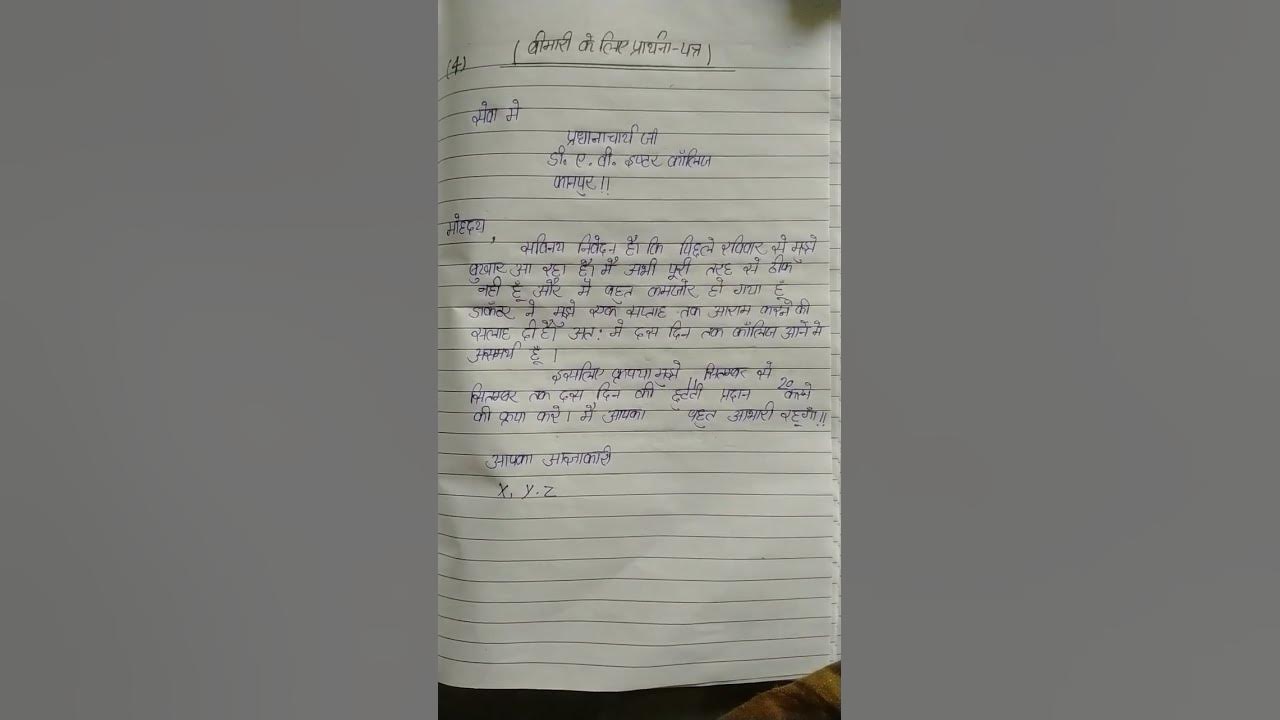 (4) (बीमारी के लिए प्रार्थना-पत्र)
सेवा मे
प्रधानाचार्य जी
डी. ए. वी. इण्टर कॉलिज
कानपुर!!
मोहदय,
सविनय निवेदन है। कि पिछले रविवार से मुझे
बुखार आ रहा है। मैं अभी पूरी तरह से ठीक
नही हूँ और मै बहुत कमजोर हो गया हूँ
डाक्टर ने मुझे एक सप्ताह तक आराम करने की
सलाह दी है। अत: मे दस दिन तक कॉलिज आने मे
असमर्थ हूँ।
इसलिए कृपया मुझे 11 सितम्बर से 20
सितम्बर तक दस दिन की छुट्टी प्रदान करने
की कृपा करे। मै आपका बहुत आभारी रहूँगा!!
आपका आज्ञाकारी
X. Y. Z